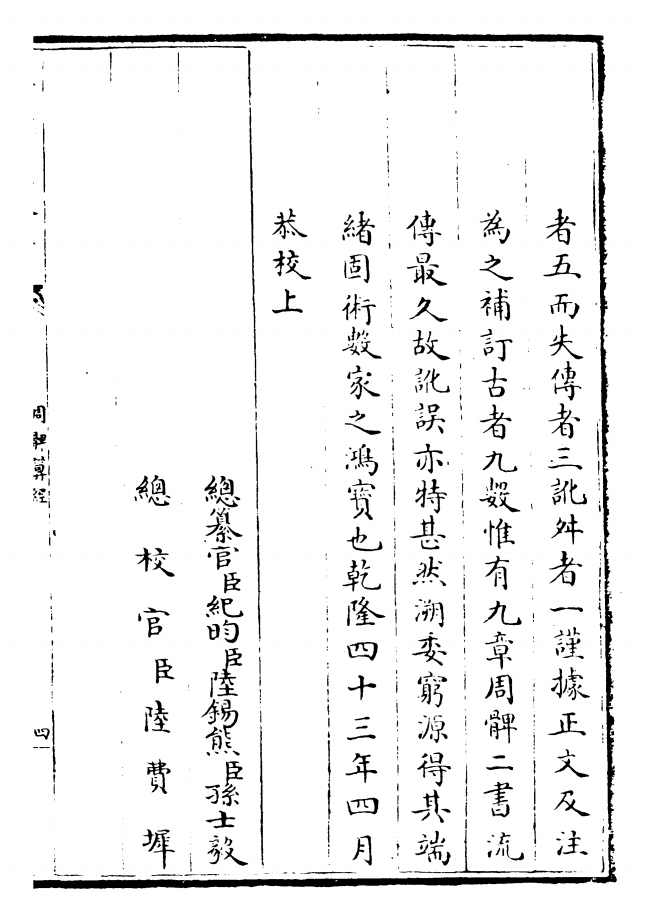 者五而失傳者三訛舛者一謹據正文及注
為之補訂古者九數惟有九章周髀二書流
傳最久故訛誤亦特甚然溯委窮源得其端
緒固術數家之鴻寶也乾隆四十三年四月
恭校上
總纂官臣紀昀臣陸錫熊臣孫士毅
總校官臣陸費墀
周髀算經
四